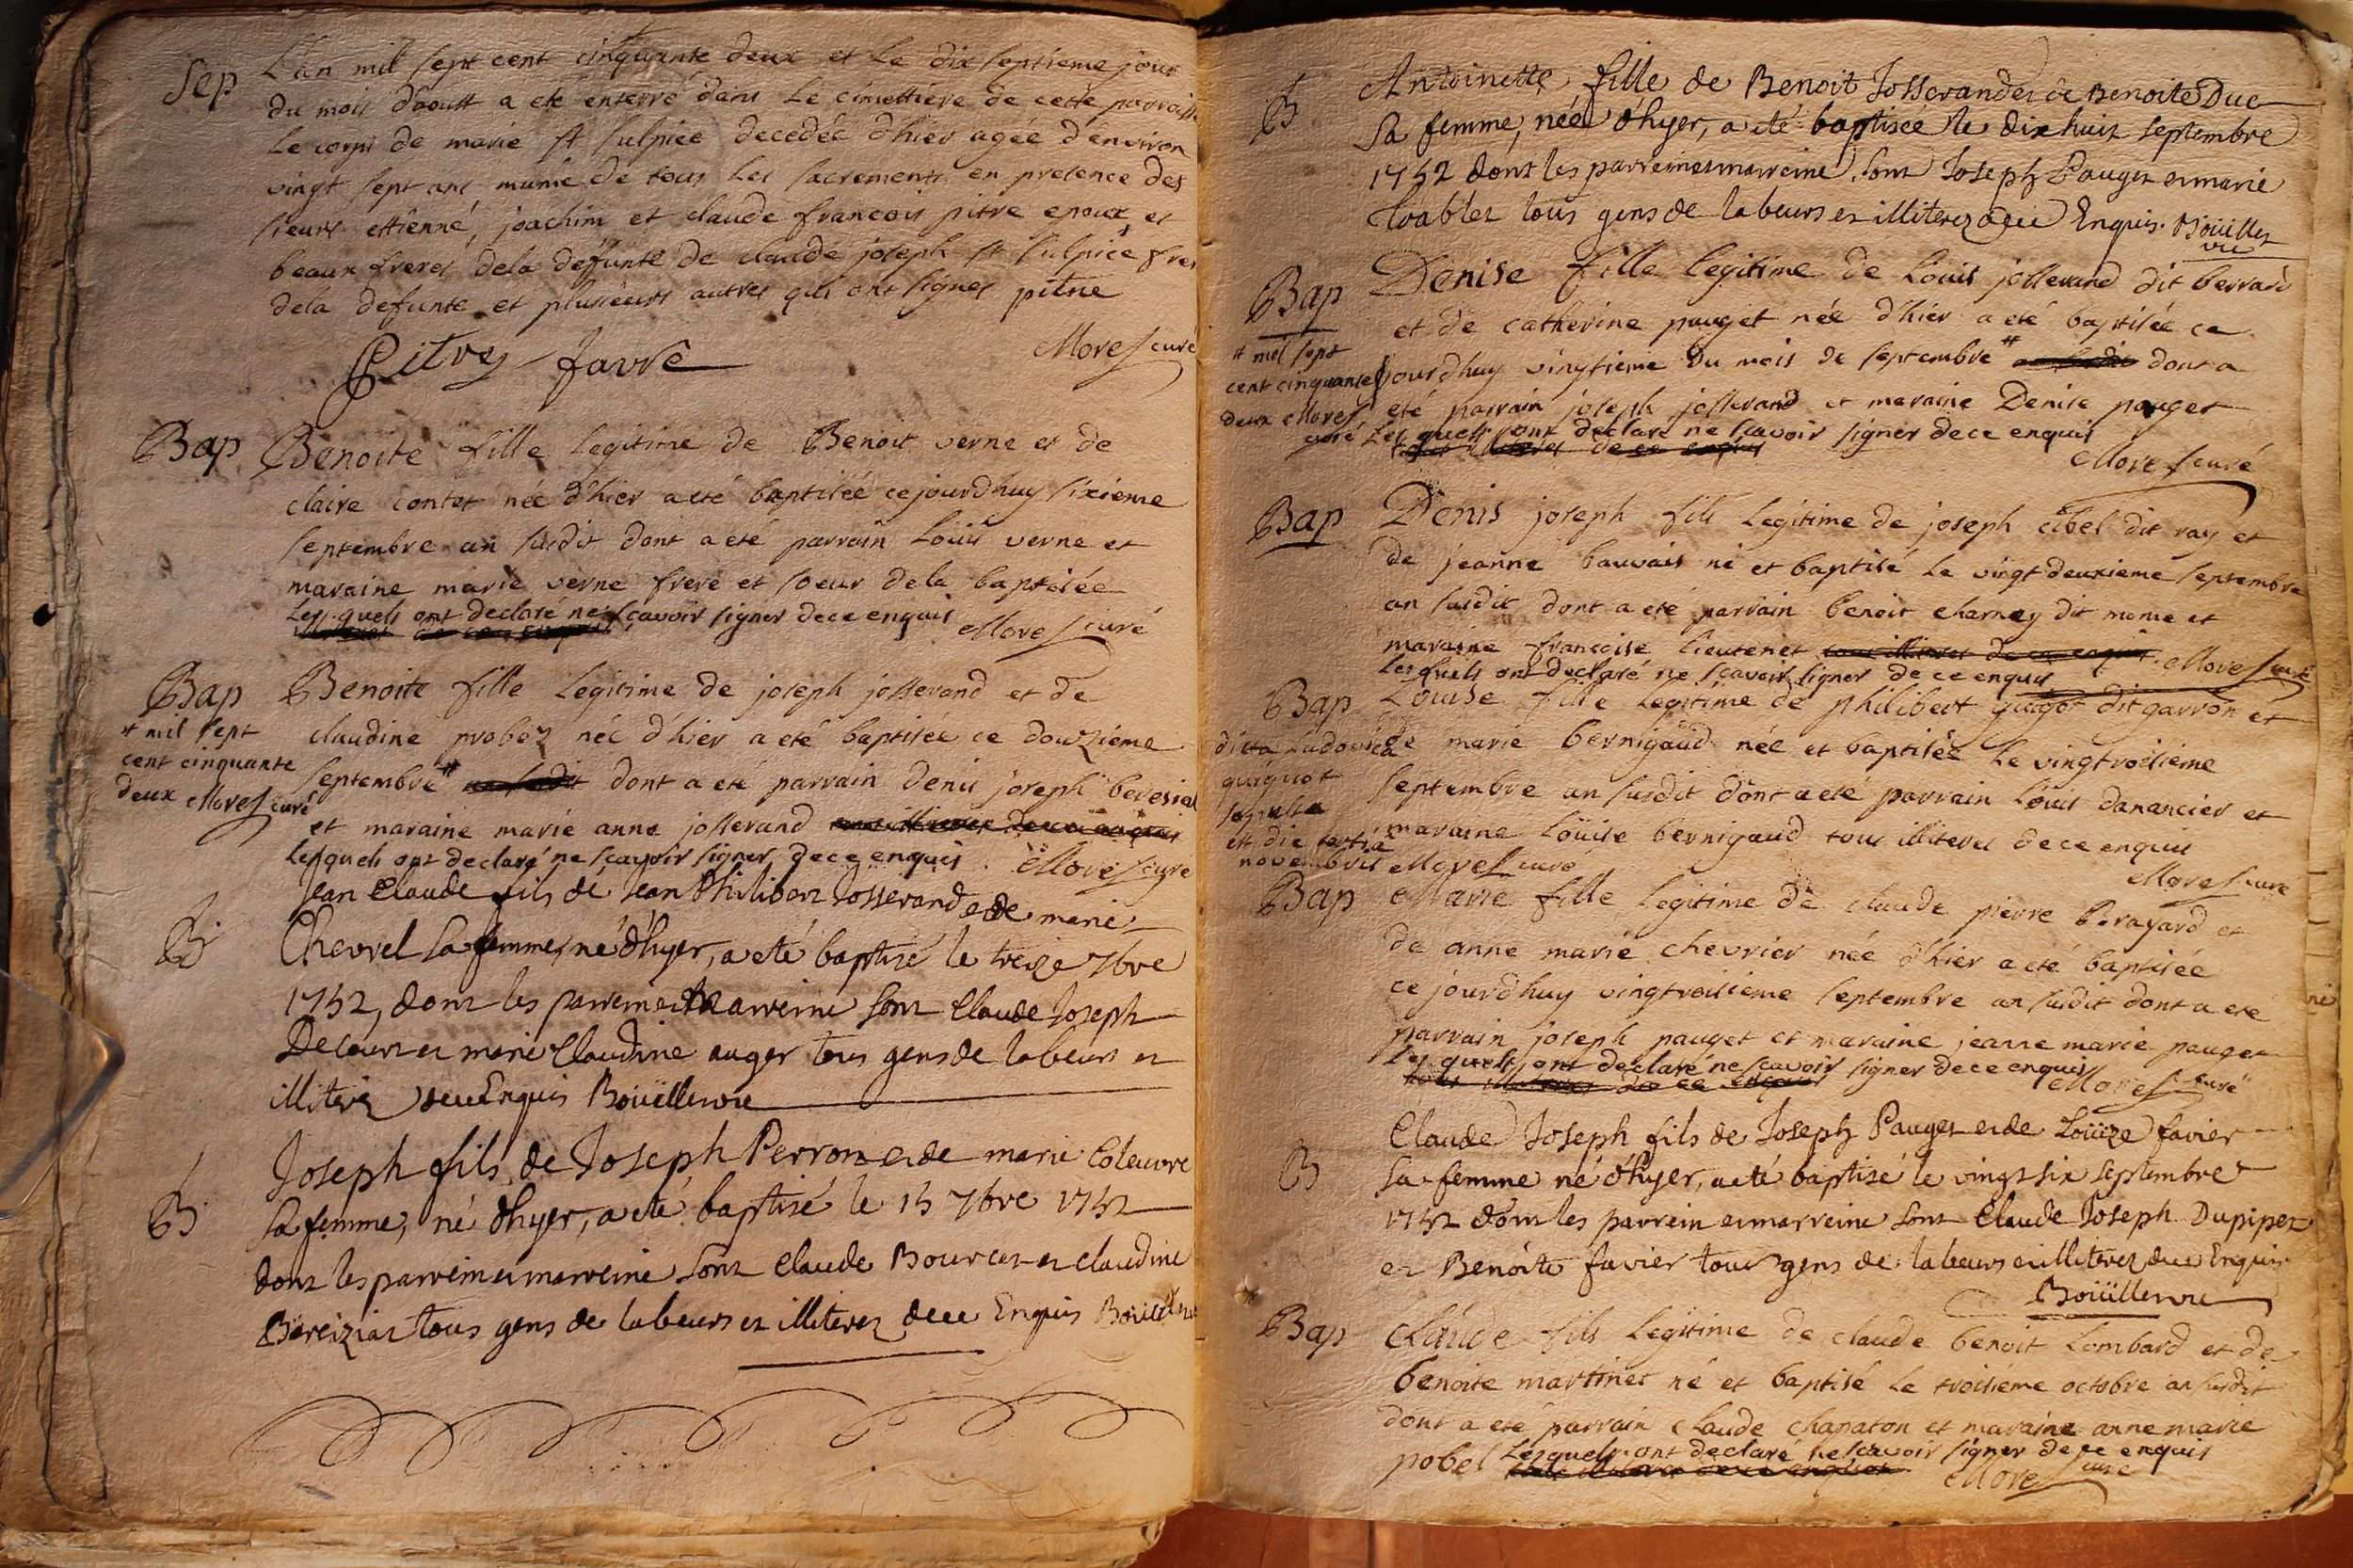 Sep
L'an mil sept cent cinquante deux et le dix septieme jour
du mois d'aoust a eté enterré dans le cimettiere de cette parroisse
le corps de marie st sulpice decedée d'hier agée d'environ
vingt sept ans munie de tous les sacrements en presence des
sieurs ettienne, joachim et claude francois pitre epoux et
beaux freres dela défunte de claude joseph st sulpice frer
dela defunte et plusieurs autres qui ont signes pitre
Pitre favre Mores curé
Bap
Benoite fille legitime de Benoit verne et de
claire contet née d'hier a eté baptisée cejourdhuy sixieme
septembre an susdit dont a eté parrain Loüis verne et
maraine marie verne frere et soeur dela baptisée
Lesquels ont declaré ne sçavoir signer dece enquis Mores curé
Bap
Benoite fille legitime de joseph josserand et de
claudine probez née d'hier a eté baptisée ce douzieme
septembre # dont a eté parrain denis joseph beresiat
et maraine marie anne josserand
Lesquels ont declaré ne sçavoir signer dece enquis Mores curé
# mil sept
cent cinquante
deux Mores curé
B
Jean Claude fils de Jean Philibert Josserand et de marie
Chevrel sa femme, né d'hyer, a eté baptisé le treize 7bre
1752, dont les parrein et marreine sont Claude Joseph
Decourt et marie Claudine auger tous gens de labeurs et
illiterez dece Enquis Boüillet vic
B
Joseph fils de Joseph Perron et de marie Coleuvre
sa femme, né d'hyer, a eté baptisé le 15 7bre 1752
dont les parrein et marreine sont Claude Bourcet et claudine
Bereiziat tous gens de labeurs et illiterez dece Enquis Boüillet vic
B
Antoinette fille de Benoit Josserand et de Benoite Duc
sa femme, née d'hyer, a eté baptisée le dix huit septembre
1752 dont les parrein et marreine sont Joseph Pauget et marie
Loablet tous gens de labeurs et illiterez dece Enquis. Boüillet
vic
Bap
Denise fille legitime de Louis josserand dit berrard
et de catherine pauget née d'hier a eté baptisée ce
jourdhuy vingtieme du mois de septembre # dont a
eté parrain joseph josserand et maraine Denise pauget
Lesquels ont declaré ne sçavoir signer dece enquis
Mores curé
# mil sept
cent cinquante
deux Mores
curé
Bap
Denis joseph fils legitime de joseph cibel dit ray et
de jeanne bauvais né et baptisé le vingt deuxieme septembre
an susdit dont a eté parrain benoit charney dit meme et
maraine francoise lieutenet Mores curé
Lesquels ont declaré ne sçavoir signer dece enquis
Bap
Louise fille legitime de philibert guigot dit garron et
de marie bernigaud née et baptisée le vingtroisieme
septembre an susdit dont a eté parrain Loüis danancier et
maraine Loüise bernigaud tous illiteres dece enquis
Mores curé
dicta Ludovica
guiguot
sepulta
est die tertia
novembris Mores curé
Bap
Marie fille legitime de claude pierre Perayard et
de anne marie chevrier née d'hier a eté baptisée
ce jourdhuy vingtroisieme septembre an susdit dont a eté
parrain joseph pauget et maraine jeanne marie pauget
Lesquels ont declaré ne sçavoir signer dece enquis
Mores curé
B
Claude Joseph fils de Joseph Pauget et de Loüize favier
sa femme né d'hyer, a eté baptisé le vingt six septembre
1752 dont les parrein et marreine sont Claude Joseph Dupipet
et Benoite favier tous gens de labeurs et illiterez dece Enquis
Boüillet vic
Bap
Claude fils legitime de claude benoit Lombard et de
benoite martinet né et baptisé le troisieme octobre an susdit
dont a eté parrain claude chapaton et maraine anne marie
pobel Lesquels ont declaré ne sçavoir signer dece enquis
Mores curé